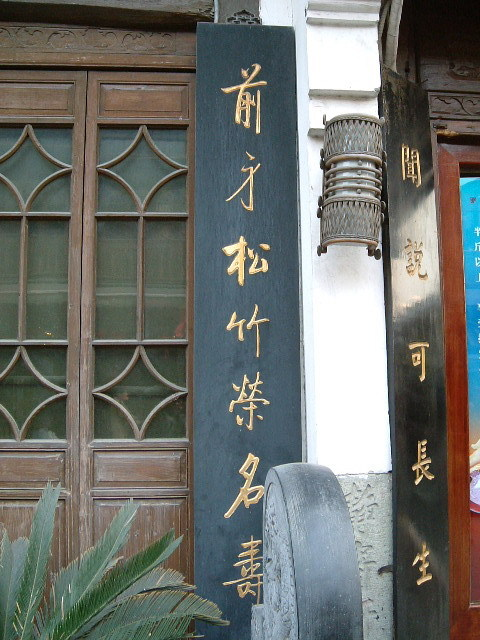 前身松竹榮名壽
聞說可長生